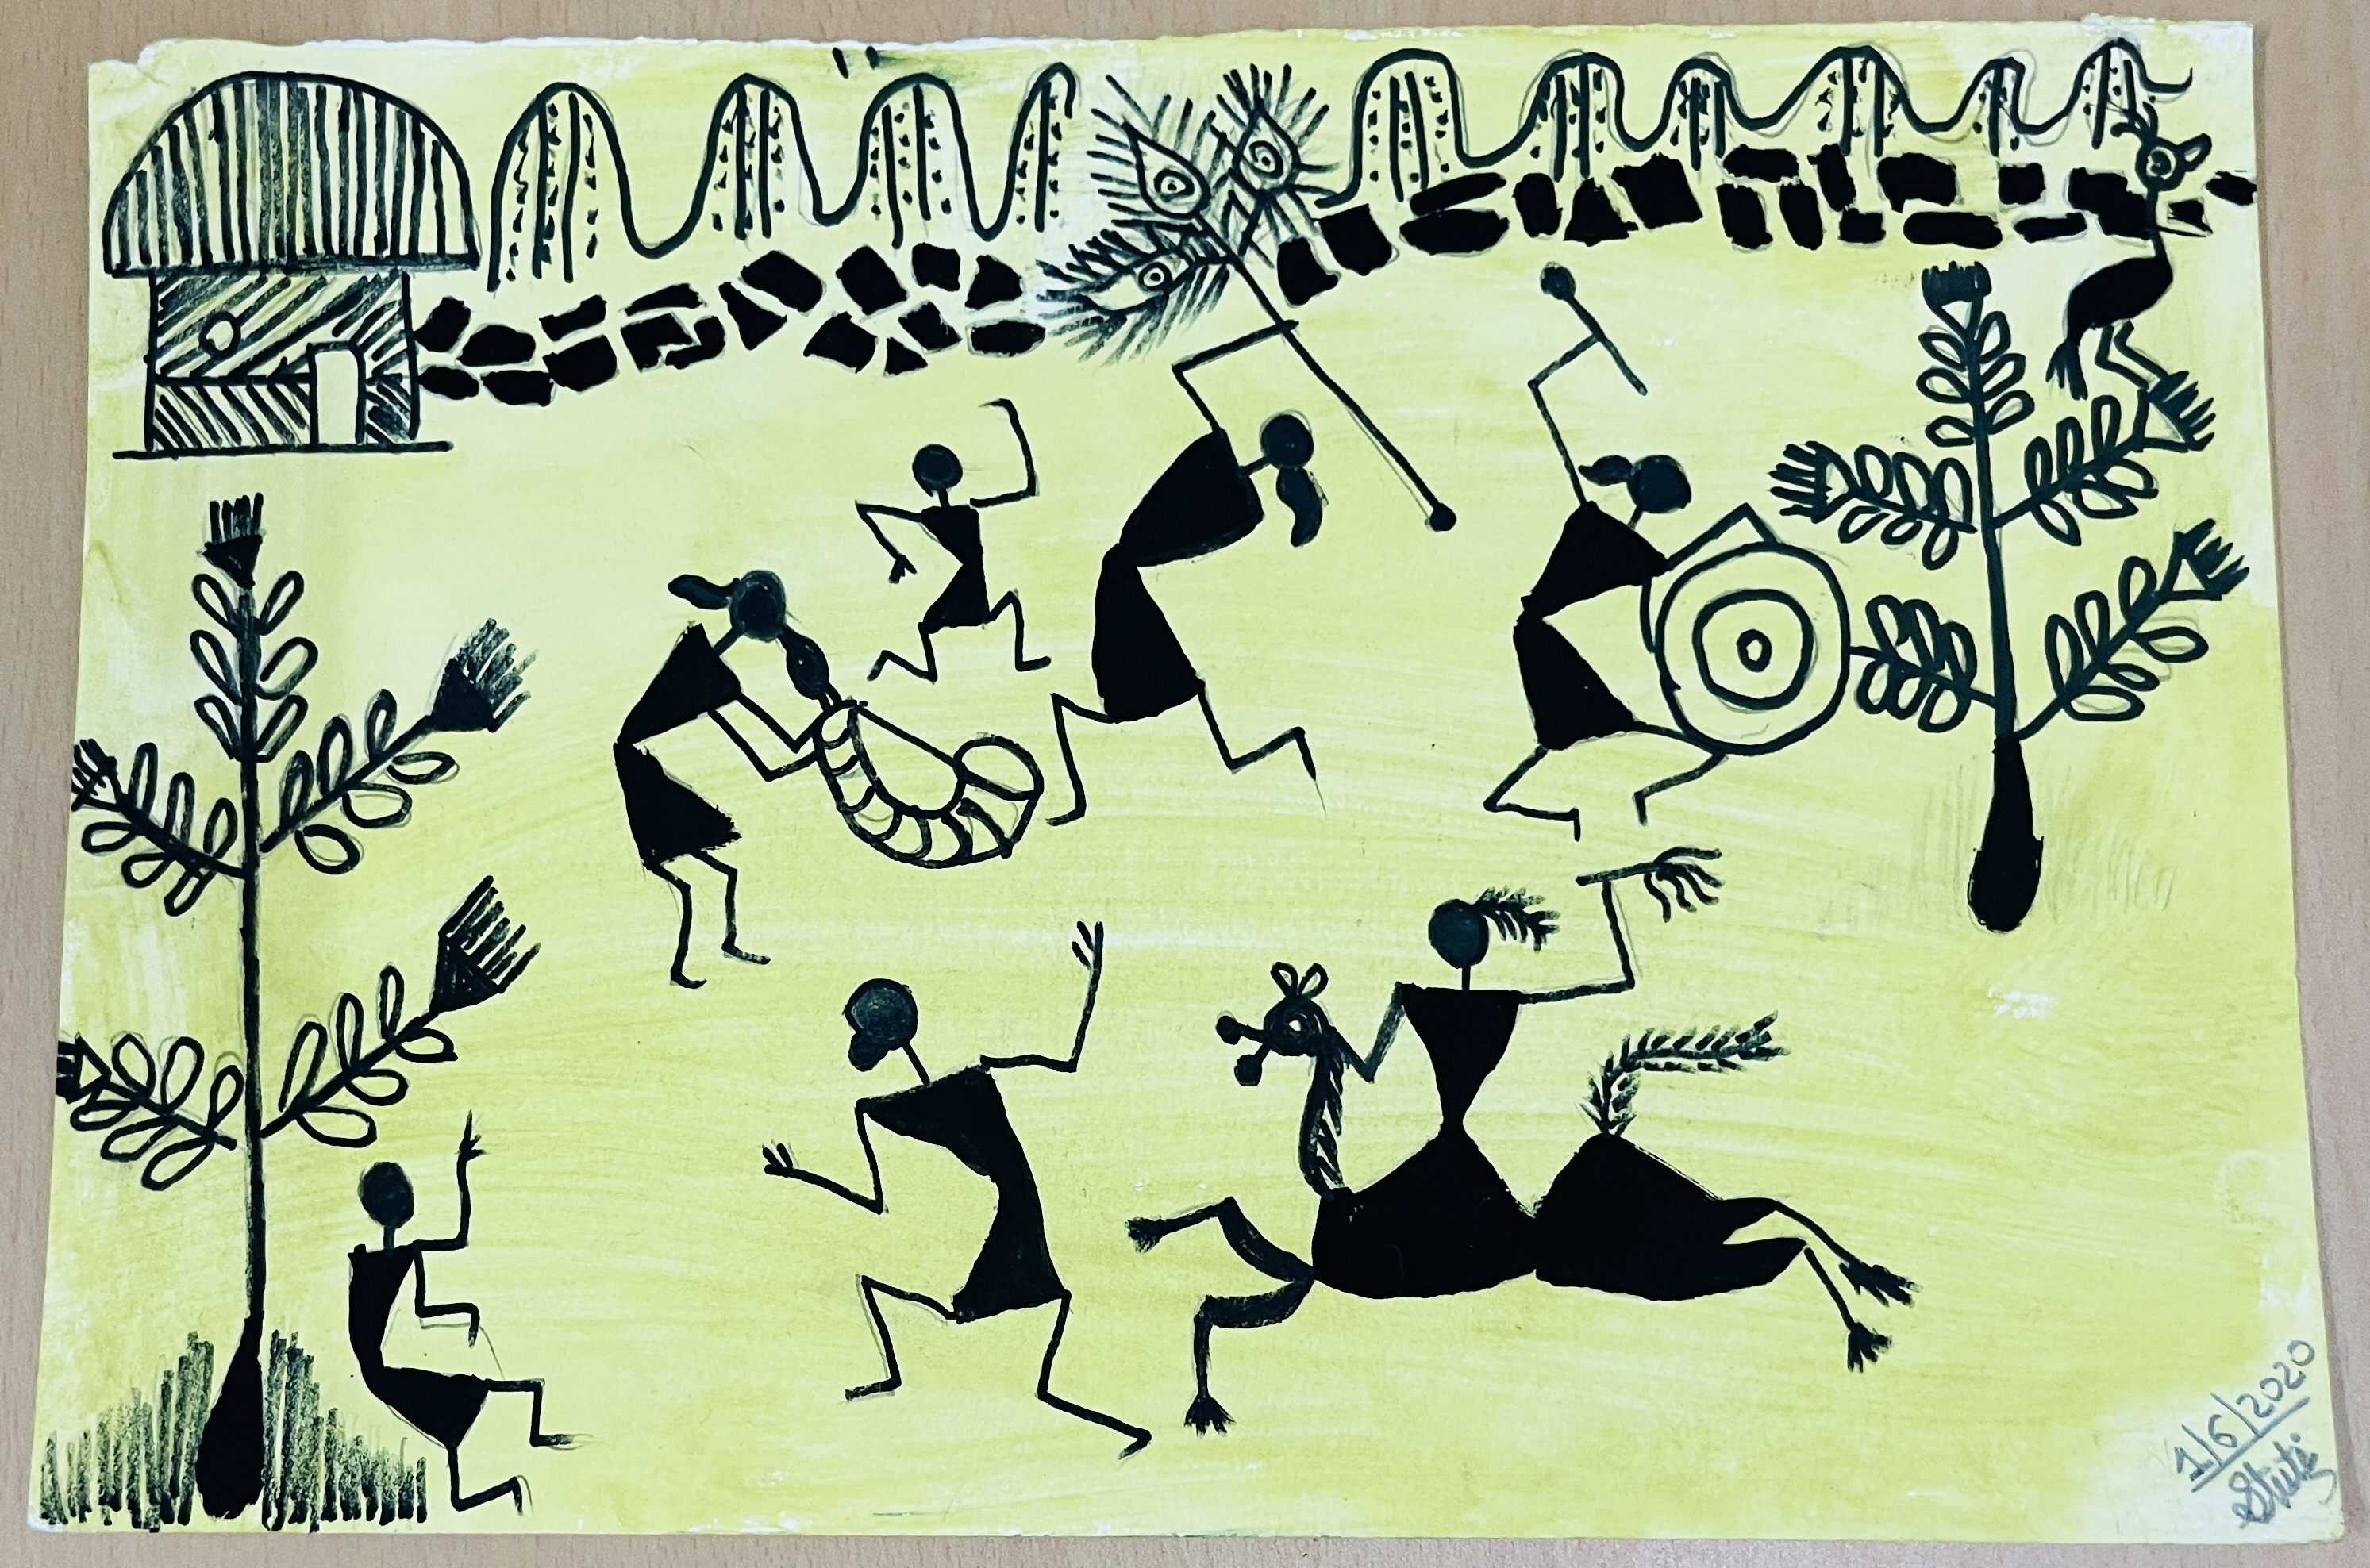 1/6/2020
Stuti